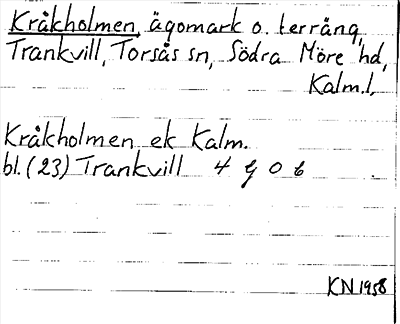 Kråkholmen, ägomark o. terräng,
Trankvill, Torsås sn, Södra Möre hd,
Kalm.l.
Kråkholmen ek Kalm.
bl. (23) Trankvill 4 G 0 b
KN 1958